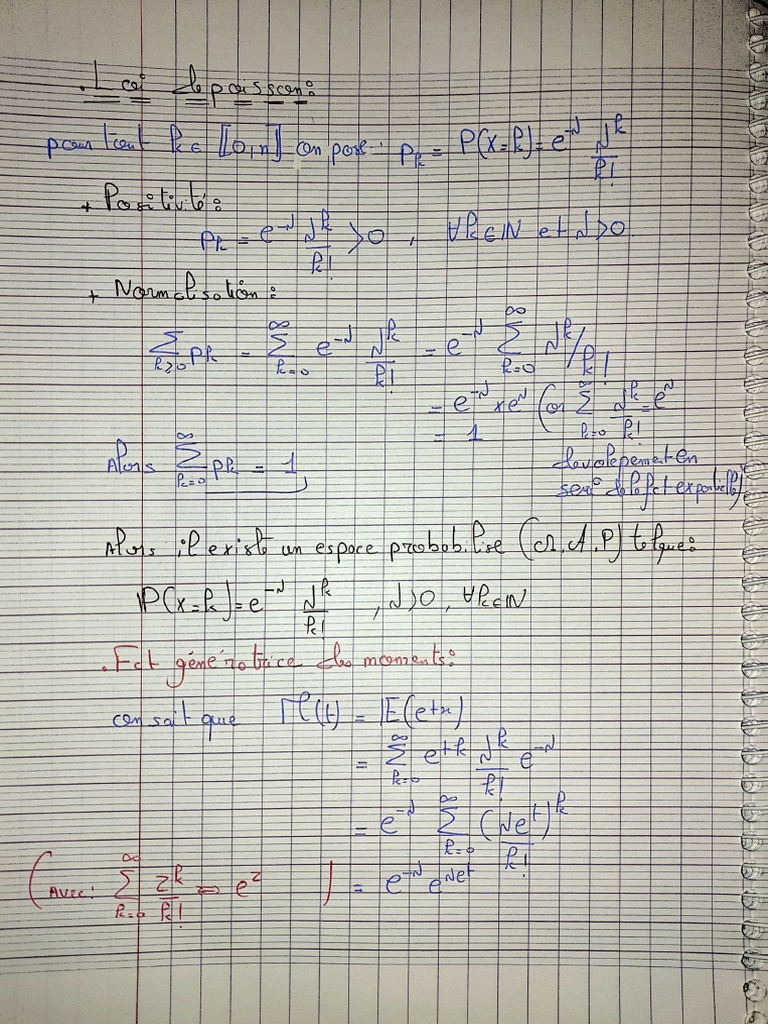 . Loi de poisson:
pour tout k ∈ ⟦0,n⟧ on pose: p_k = P(X=k) = e^{-λ} λ^k/k!
+ Positivité:
p_k = e^{-λ} λ^k/k! > 0 , ∀k∈ℕ et λ>0
+ Normalisation:
∑_{k≥0} p_k = ∑_{k=0}^{∞} e^{-λ} λ^k/k! = e^{-λ} ∑_{k=0}^{∞} λ^k/k!
= e^{-λ} × e^{λ} (car ∑_{k=0}^{∞} λ^k/k! = e^{λ}
= 1
devolepement en
Alors ∑_{k=0}^{∞} p_k = 1
serie de la fct expontielle)
Alors il existe un espace probabilise (Ω, A, P) telque:
P(x=k) = e^{-λ} λ^k/k! , λ>0, ∀k∈ℕ
. Fct génératrice des moments:
on sait que M(t) = E(e^{tx})
= ∑_{k=0}^{∞} e^{tk} λ^k/k! e^{-λ}
= e^{-λ} ∑_{k=0}^{∞} (λe^t)^k/k!
(Avec: ∑_{k=0}^{∞} z^k/k! = e^z ) = e^{-λ} e^{λe^t}